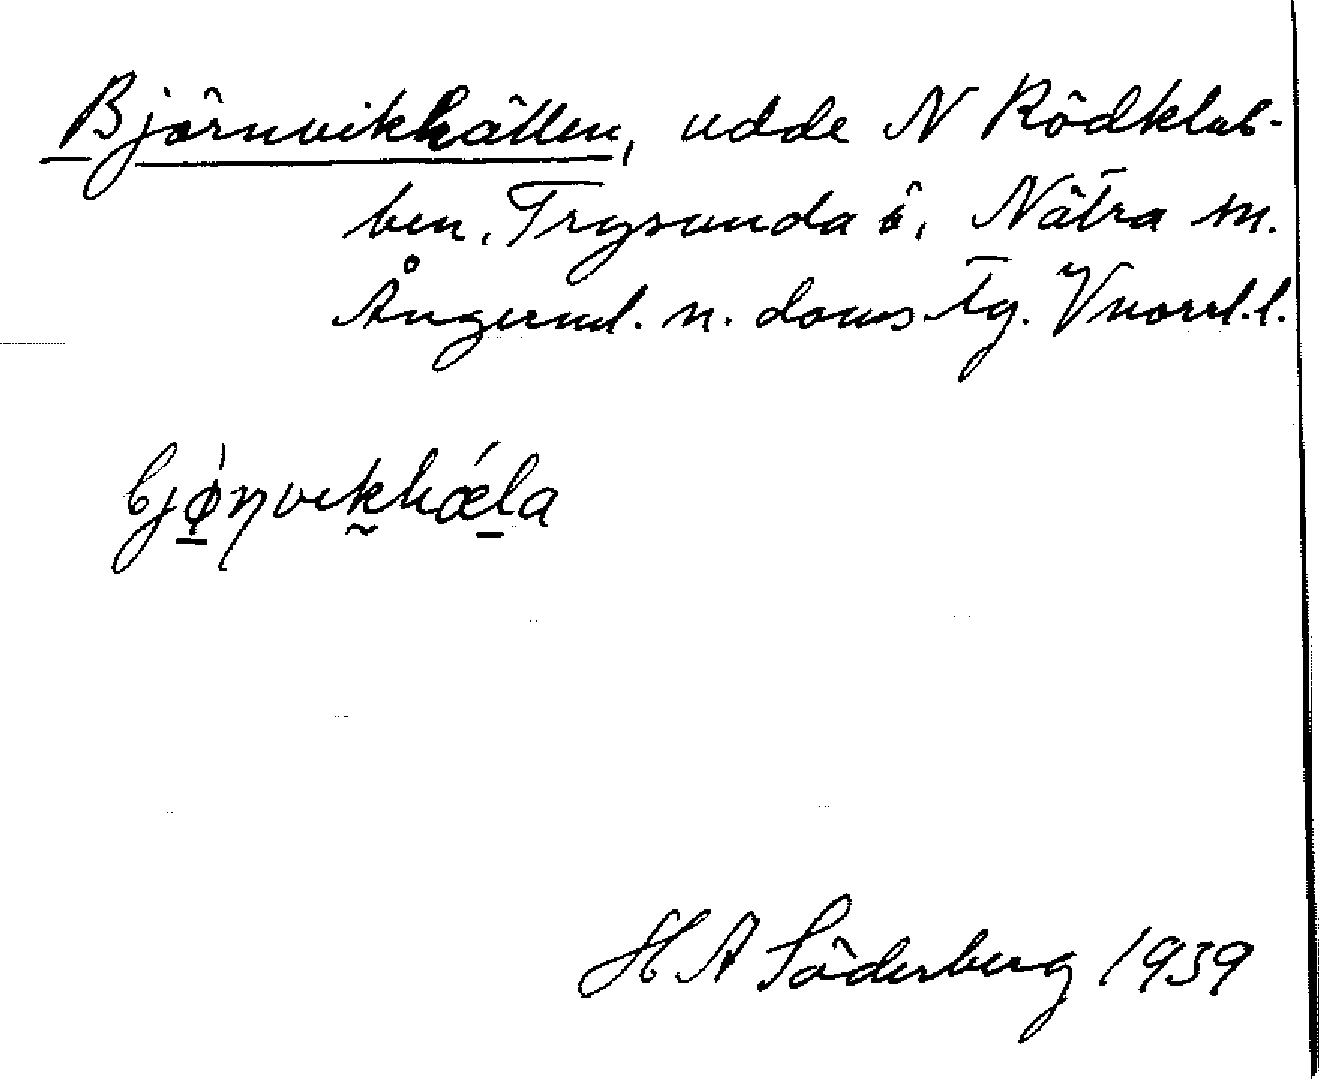 Björnvikhällen, udde N Rödklub-
ben, Trysunda ö, Nätra sn.
Ångerml. n. doms. tg. Vnorrl. l.
bjǿŋvikhǽla
H A Söderberg 1939